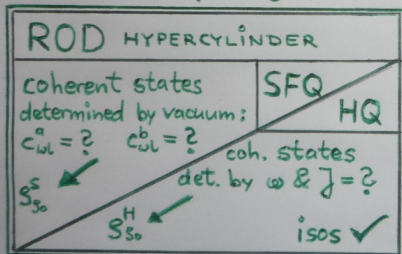 ROD HYPERCYLINDER
coherent states
determined by vacuum:
c^a_ωl = ? c^b_ωl = ?
ρ^S_ξ0
SFQ
HQ
coh. states
det. by ω & J = ?
ρ^H_ξ0
isos ✓